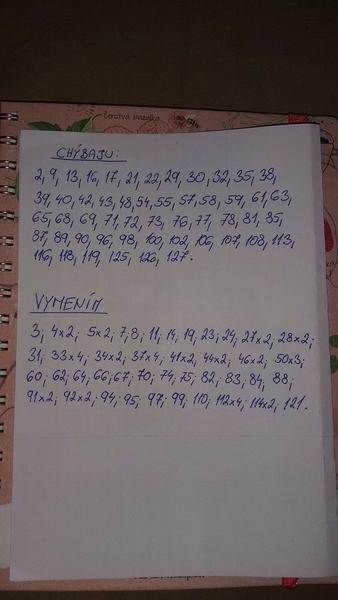 čerstvá bazalka
CHÝBAJU:
2, 9, 13, 16, 17, 21, 22, 29, 30, 32, 35, 38,
39, 40, 42, 43, 48, 54, 55, 57, 58, 59, 61, 63,
65, 68, 69, 71, 72, 73, 76, 77, 78, 81, 85,
87, 89, 90, 96, 98, 100, 102, 106, 107, 108, 113,
116, 118, 119, 125, 126, 127.
VYMENÍM
3; 4x2; 5x2; 7; 8; 11; 14; 19; 23; 24; 27x2; 28x2;
31; 33x4; 34x2; 37x4; 41x2; 44x2; 46x2; 50x3;
60; 62; 64; 66; 67; 70; 74; 75; 82; 83; 84; 88;
91x2; 92x2; 94; 95; 97; 99; 110; 112x4; 114x2; 121.